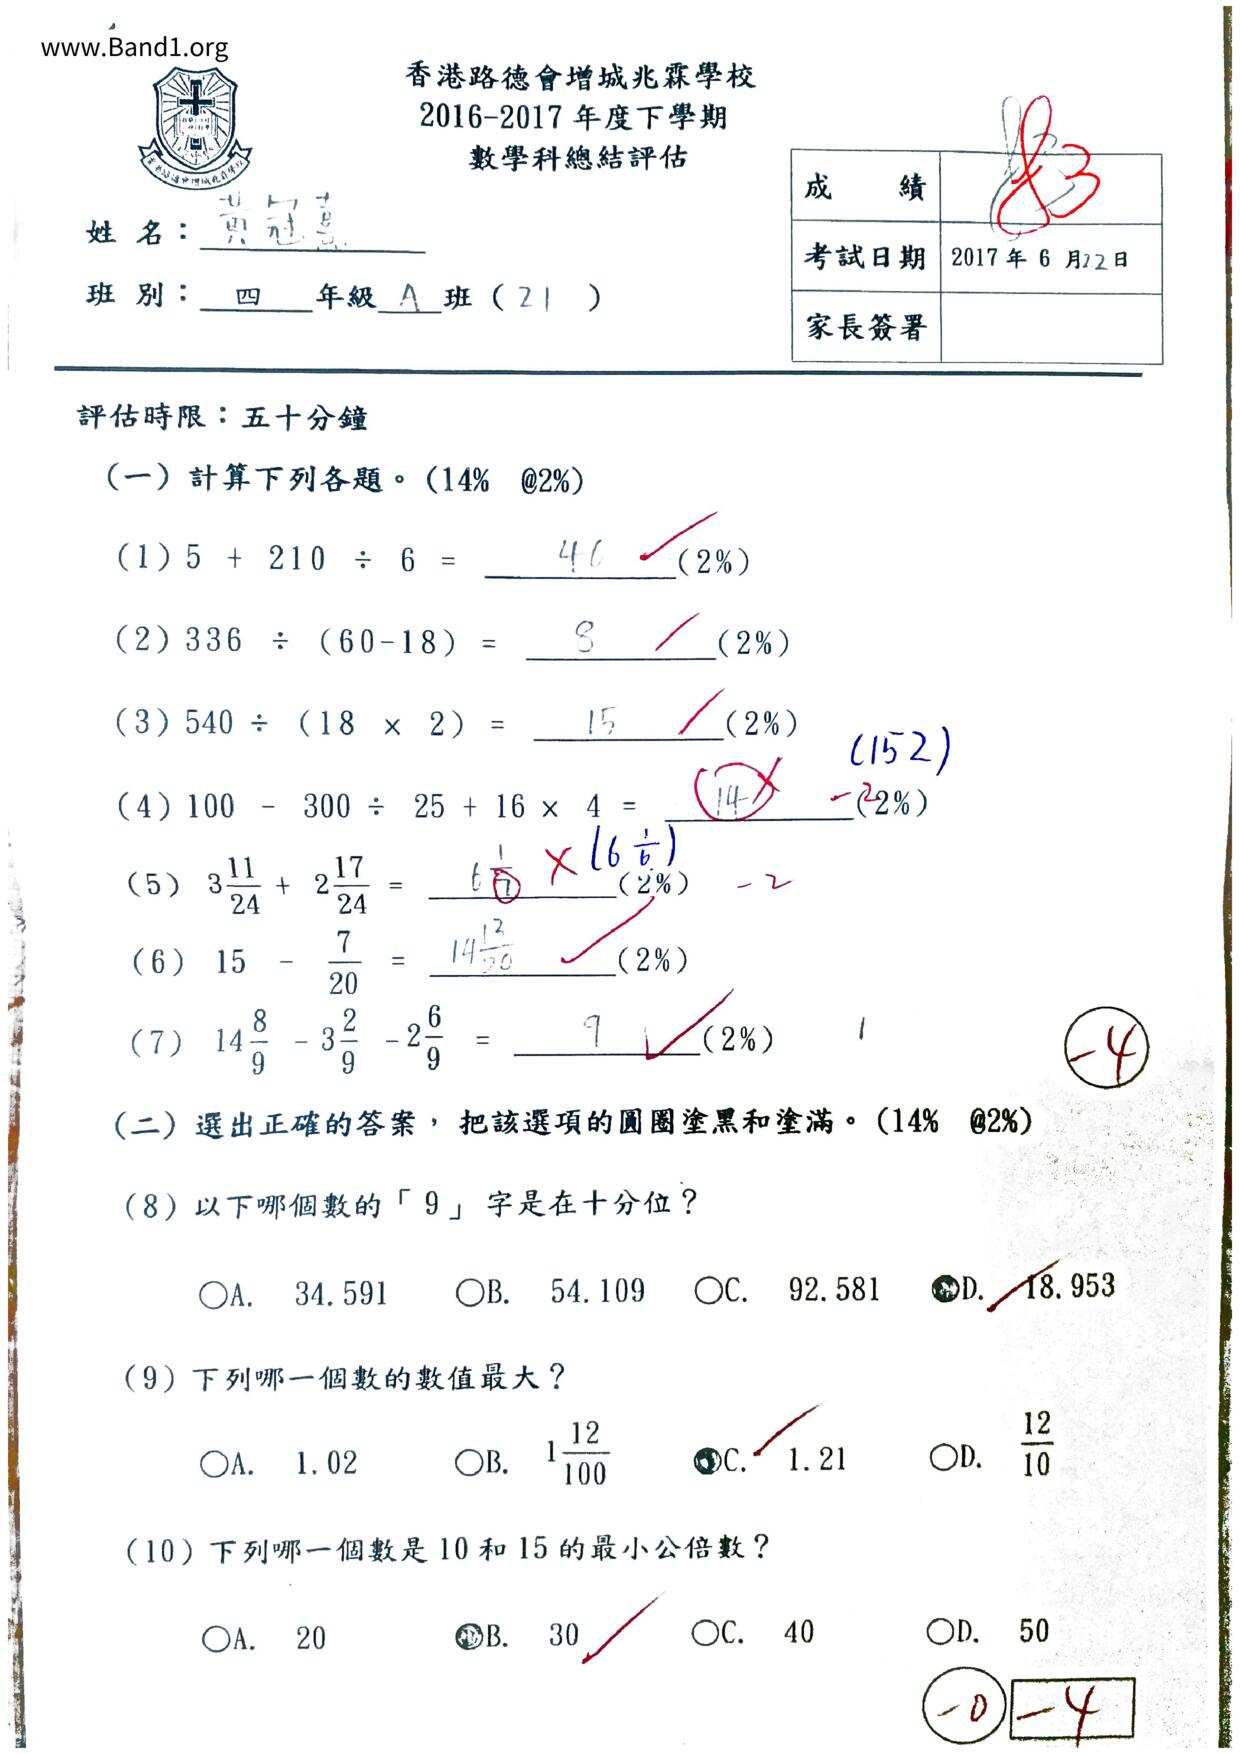 www.Band1.org
香港路德會增城兆霖學校
2016-2017 年度下學期
數學科總結評估
成 績 83
考試日期 2017 年 6 月22日
家長簽署
姓 名：黃冠熹
班 別：四 年級 A 班 ( 21 )
評估時限：五十分鐘
(一) 計算下列各題。(14% @2%)
(1) 5 + 210 ÷ 6 = 40 (2%)
(2) 336 ÷ (60-18) = 8 (2%)
(3) 540 ÷ (18 × 2) = 15 (2%)
(152)
(4) 100 - 300 ÷ 25 + 16 × 4 = 14 -2 (2%)
(5) 3 11/24 + 2 17/24 = 6 1/7 (6 1/6) (2%) -2
(6) 15 - 7/20 = 14 13/20 (2%)
(7) 14 8/9 - 3 2/9 - 2 6/9 = 9 (2%)
-4
(二) 選出正確的答案，把該選項的圓圈塗黑和塗滿。(14% @2%)
(8) 以下哪個數的「9」字是在十分位？
○A. 34.591 ○B. 54.109 ○C. 92.581 ●D. 18.953
(9) 下列哪一個數的數值最大？
○A. 1.02 ○B. 1 12/100 ●C. 1.21 ○D. 12/10
(10) 下列哪一個數是 10 和 15 的最小公倍數？
○A. 20 ●B. 30 ○C. 40 ○D. 50
-0 -4